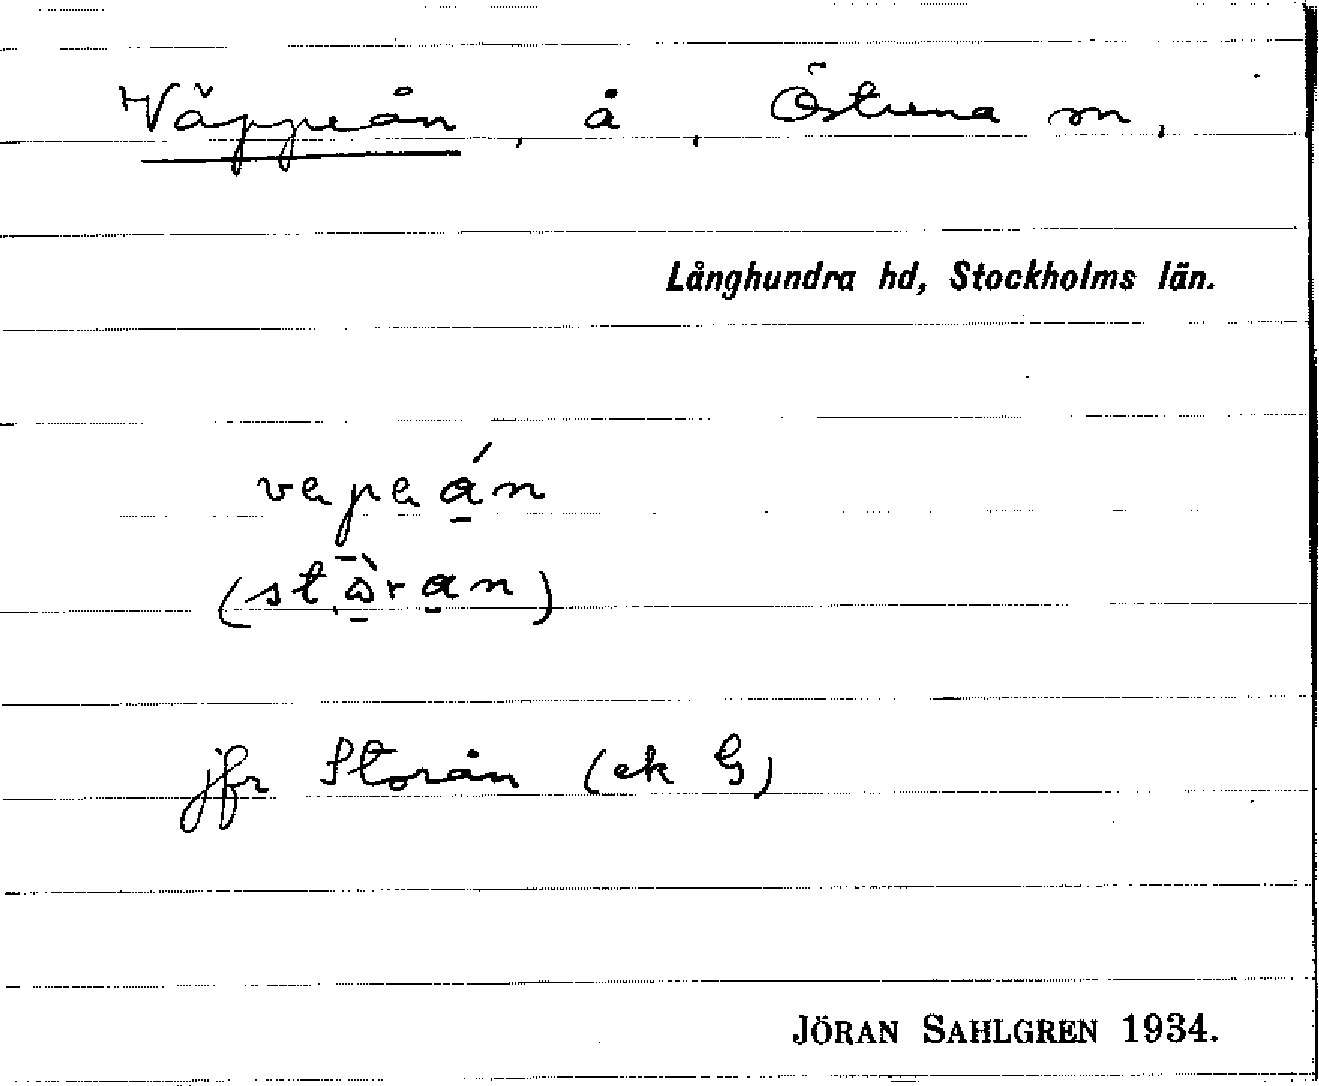 Väppeån, å, Östuna sn,
Långhundra hd, Stockholms län.
jfr Storån (ek G)
JÖRAN SAHLGREN 1934.